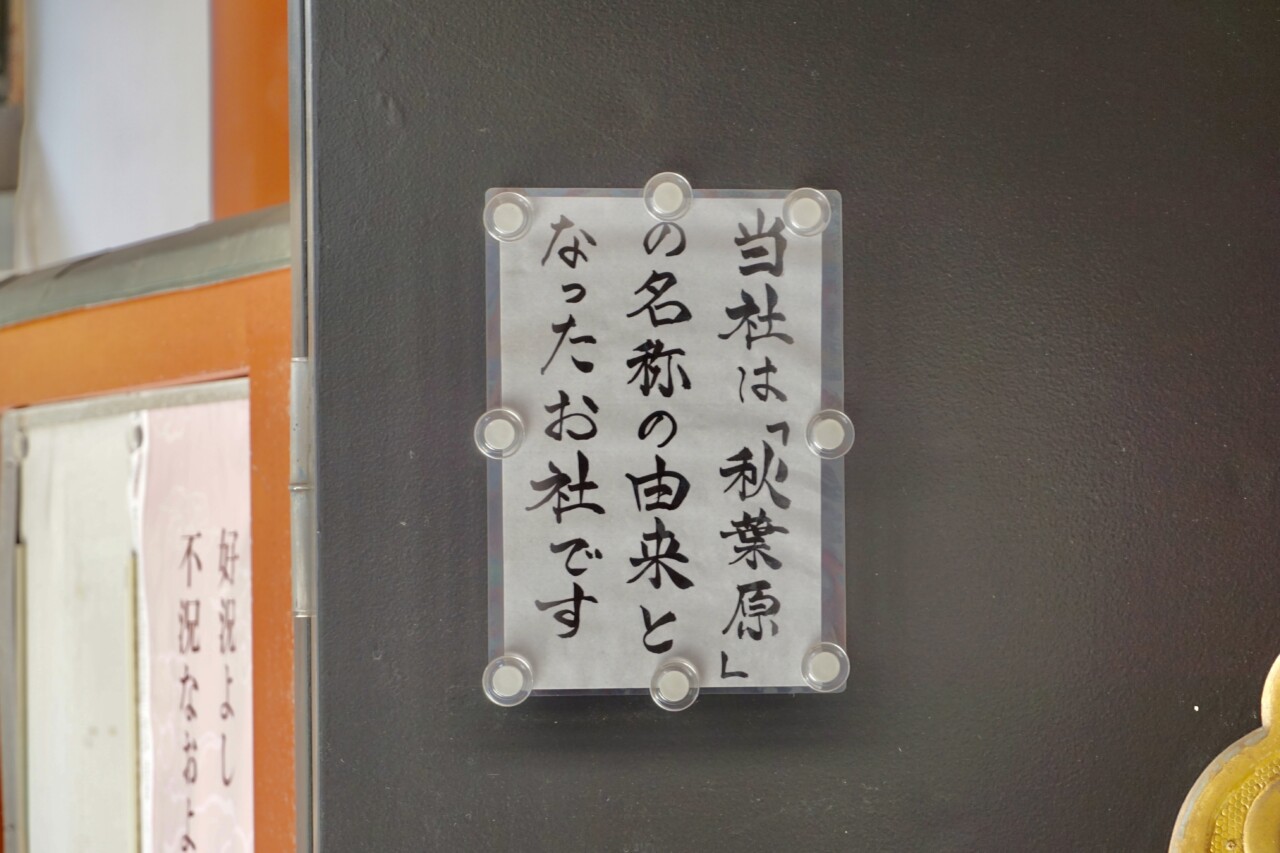 当社は「秋葉原」
の名称の由来と
なったお社です
好況よし
不況なおよ